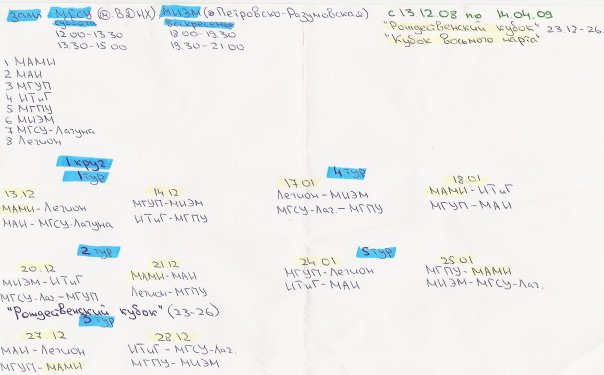 Залы МГСУ (м. ВДНХ) МИЭМ (м Петровско-Разумовская)
суббота воскресенье
12.00-13.30 18.00-19.30
13.30-15.00 19.30-21.00
с 13.12.08 по 14.04.09
"Рождественский кубок" 23.12-26.
"Кубок восьмого марта"
1 МАМИ
2 МАИ
3 МГУП
4 ИТиГ
5 МГПУ
6 МИЭМ
7 МГСУ-Лагуна
8 Легион
1 круг
1 тур
13.12
МАМИ-Легион
МАИ-МГСУ-Лагуна
14.12
МГУП-МИЭМ
ИТиГ-МГПУ
2 тур
20.12
МИЭМ-ИТиГ
МГСУ-Лаг-МГУП
21.12
МАМИ-МАИ
Легион-МГПУ
"Рождественский кубок" (23-26)
3 тур
27.12
МАИ-Легион
МГУП-МАМИ
28.12
ИТиГ-МГСУ-Лаг.
МГПУ-МИЭМ
4 тур
17.01
Легион-МИЭМ
МГСУ-Лаг-МГПУ
18.01
МАМИ-ИТиГ
МГУП-МАИ
5 тур
24.01
МГУП-Легион
ИТиГ-МАИ
25.01
МГПУ-МАМИ
МИЭМ-МГСУ-Лаг.